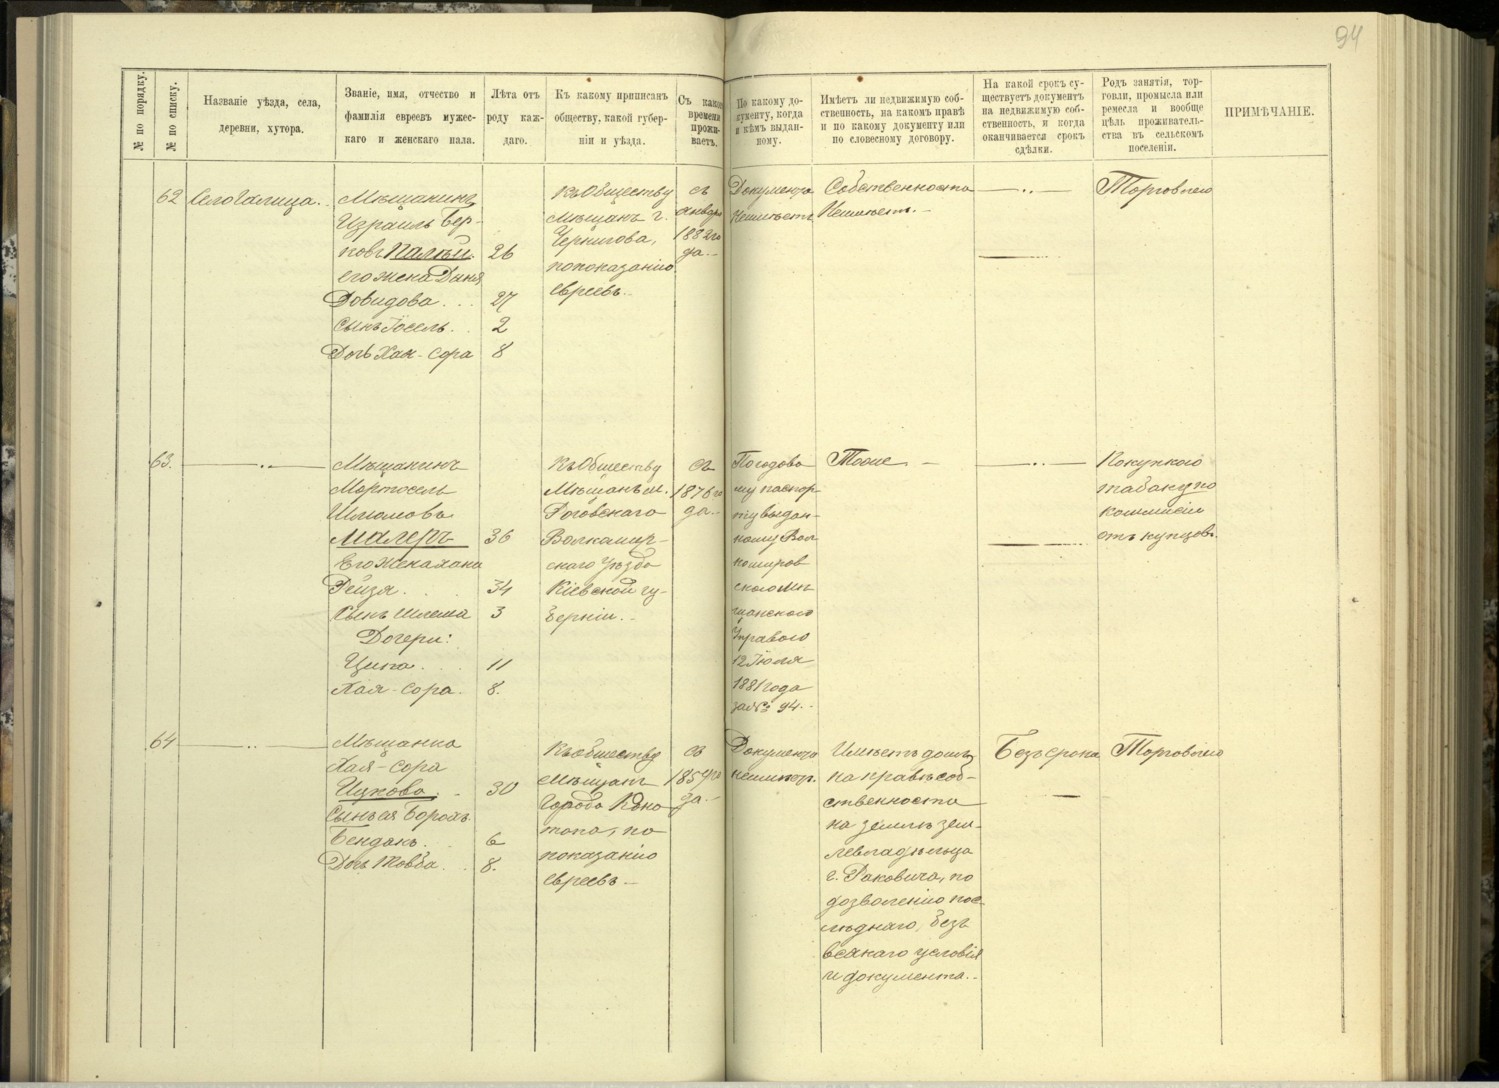 94
№ по порядку.
№ по списку.
Названіе уѣзда, села,
деревни, хутора.
Званіе, имя, отчество и
фамилія евреевъ мужес-
каго и женскаго пала.
Лѣта отъ
роду каж-
даго.
Къ какому приписанъ
обществу, какой губер-
ніи и уѣзда.
Съ какого
времени
прожи-
ваетъ.
По какому до-
кументу, когда
и кѣмъ выдан-
ному.
Имѣетъ ли недвижимую соб-
ственность, на какомъ правѣ
и по какому документу или
по словесному договору.
На какой срокъ су-
ществуетъ документъ
на недвижимую соб-
ственность, и когда
оканчивается срокъ
сдѣлки.
Родъ занятія, тор-
говли, промысла или
ремесла и вообще
цѣль проживатель-
ства въ сельскомъ
поселеніи.
ПРИМѢЧАНІЕ.
62
Село Галица.
Мѣщанинъ
Израиль Бер-
ковъ
его жена Двися
Довидова
Сынъ Іосель
Дочь Хая-Сора
26
27
2
8
Къ Обществу
Мѣщанъ г.
Чернигова,
по показанію
евреевъ.
съ
января
1882 го-
да.
Документа
Неимѣетъ
Собственности
Неимѣетъ.
Торговлею
63.
Мѣщанинъ
Шліомовъ
Малеръ
Его жена Хана
Рейзя
Сынъ Шлема
Дочери:
Ципа
Хая-Сора.
36
34
3
11
8.
Къ Обществу
Мѣщанъ м.
Роговскаго
Волкомир-
скаго Уѣзда
Кіевской гу-
берніи.
съ
1876 го-
да.
По годово-
му паспор-
ту выдан-
ному Вол-
комиров
ской мѣ-
щанской
Управою
12 Іюля
1881 года
за № 94.
Тоже
Покупкою
табаку по
коммисіи
отъ купцовъ.
64
Мѣщанка
Хая-Сора
Цукова
Сынъ ея Борохъ
Бендакъ
Дочь Товба
30
6
8.
Къ обществу
Мѣщанъ
Города Коно-
топа, по
показанію
евреевъ
съ
1854 го-
да.
Документа
неимѣетъ.
Имѣетъ домъ
на правѣ соб-
ственности
на землѣ зем-
левладѣльца
г. Раковича, по
дозволенію пос-
лѣдняго, безъ
всякаго условія
и документа.
Безъ срока
Торговлею